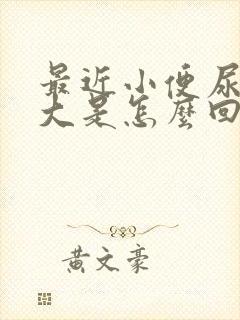 最近小便尿
大是怎麼回
黃文豪